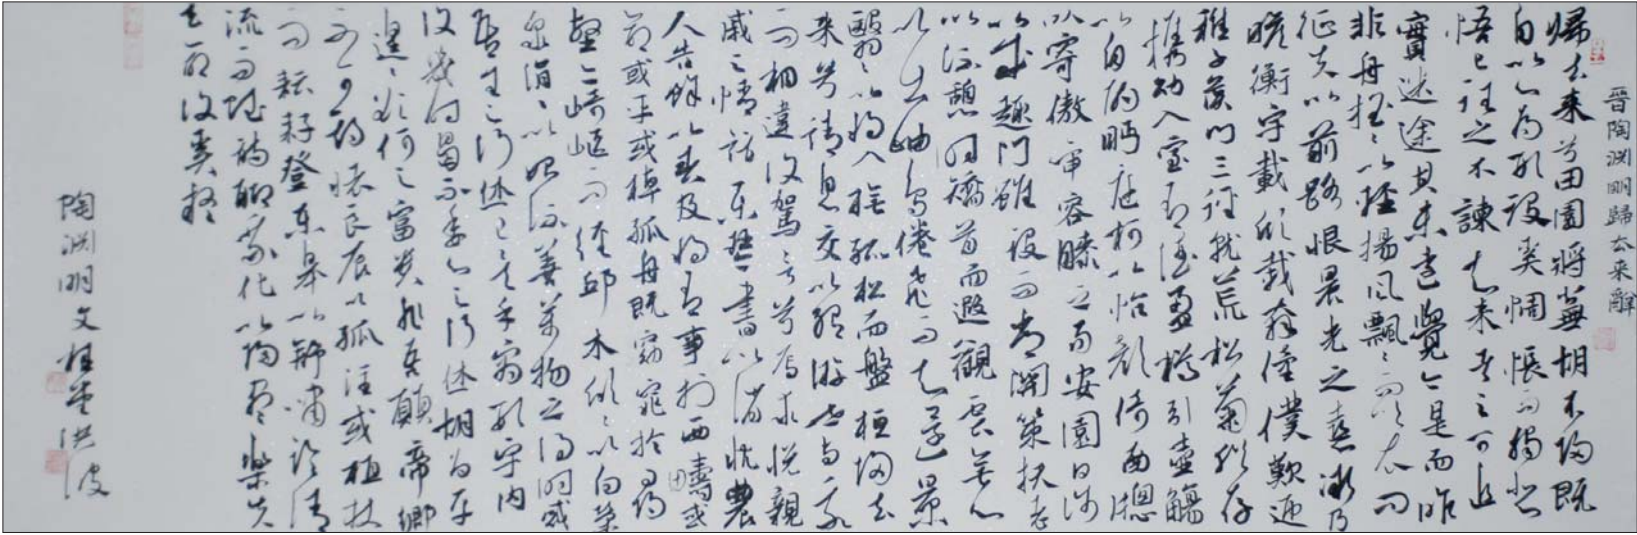 晉陶淵明歸去來辭
歸去來兮田園將蕪胡不歸既
自以為形役奚惆悵而獨悲
悟已往之不諫知來者之可追
實迷途其未遠覺今是而昨
非舟搖〻以輕揚風飄〻而吹衣問
征夫以前路恨晨光之熹微乃
瞻衡宇載欣載奔僮僕歡迎
稚子候門三徑就荒松菊猶存
攜幼入室有酒盈樽引壺觴
以自酌眄庭柯以怡顏倚南窗
以寄傲審容膝之易安園日涉
以成趣門雖設而常關策扶老
以流憩時矯首而遐觀雲無心
以出岫鳥倦飛而知還景
翳〻以將入撫孤松而盤桓歸去
來兮請息交以絕游世與我
而相違復駕言兮焉求悅親
戚之情話樂琴書以消憂農
人告餘以春及將有事於西疇或
或棹孤舟既窈窕於尋
壑亦崎嶇而經邱木欣〻以向榮
泉涓〻以始流善萬物之得時感
吾生之行休已矣乎寓形宇內
復幾時曷不委心之行休胡為乎
遑〻欲何之富貴非吾願帝鄉
不可期懷良辰以孤往或植杖
而耘耔登東皋以舒嘯臨清
流而賦詩聊乘化以歸盡樂夫
天命復奚疑
陶淵明文 洪波